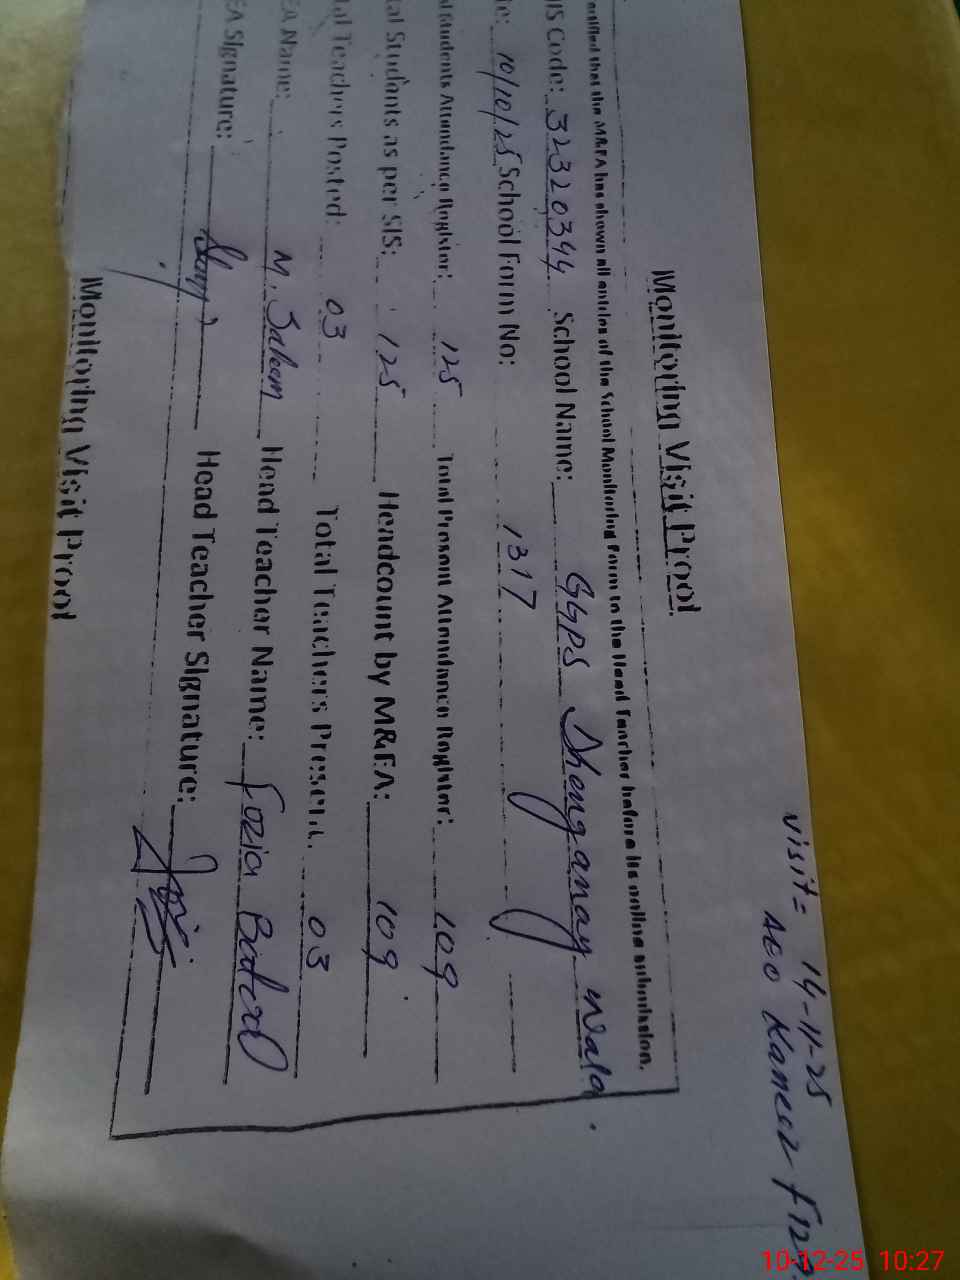 visit= 14-11-25
AEO Kaneez
Monitoring Visit Proof
that the M&EA has shown all entries of the School Monitoring Form to the Head Teacher before its online submission.
IS Code: 32320344 School Name: GGPS Dhonganay wala
10/10/25 School Form No: 1317
Students Attendance Register: 125 Total Present Attendance Register: 109
tal Students as per SIS: 125 Headcount by M&EA: 109
tal Teachers Posted: 03 Total Teachers Present: 03
EA Name: M. Saleem Head Teacher Name: Fozia Batool
EA Signature: Head Teacher Signature:
Monitoring Visit Proof
10-12-25 10:27